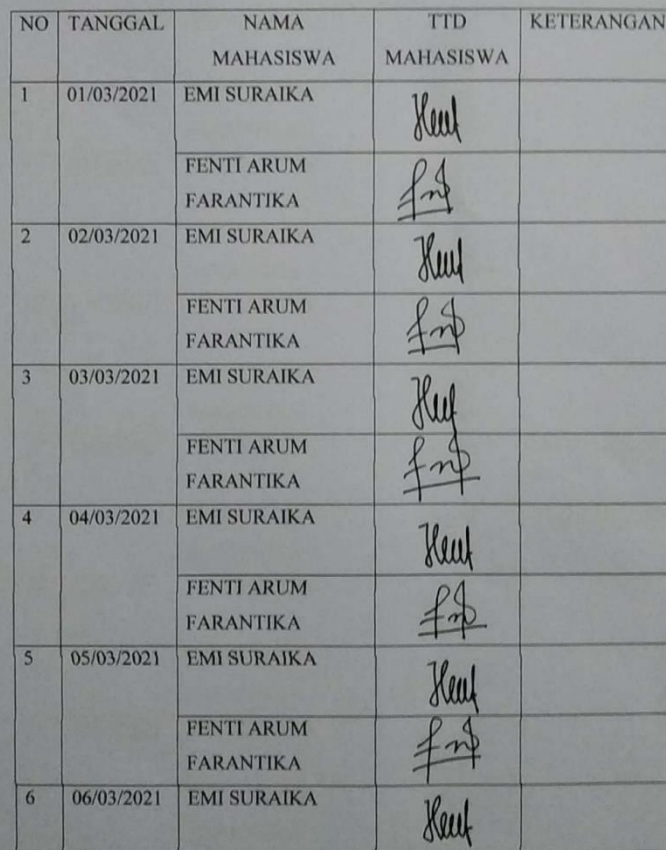 NO TANGGAL NAMA TTD KETERANGAN
MAHASISWA MAHASISWA
1 01/03/2021 EMI SURAIKA
FENTI ARUM
FARANTIKA
2 02/03/2021 EMI SURAIKA
FENTI ARUM
FARANTIKA
3 03/03/2021 EMI SURAIKA
FENTI ARUM
FARANTIKA
4 04/03/2021 EMI SURAIKA
FENTI ARUM
FARANTIKA
5 05/03/2021 EMI SURAIKA
FENTI ARUM
FARANTIKA
6 06/03/2021 EMI SURAIKA